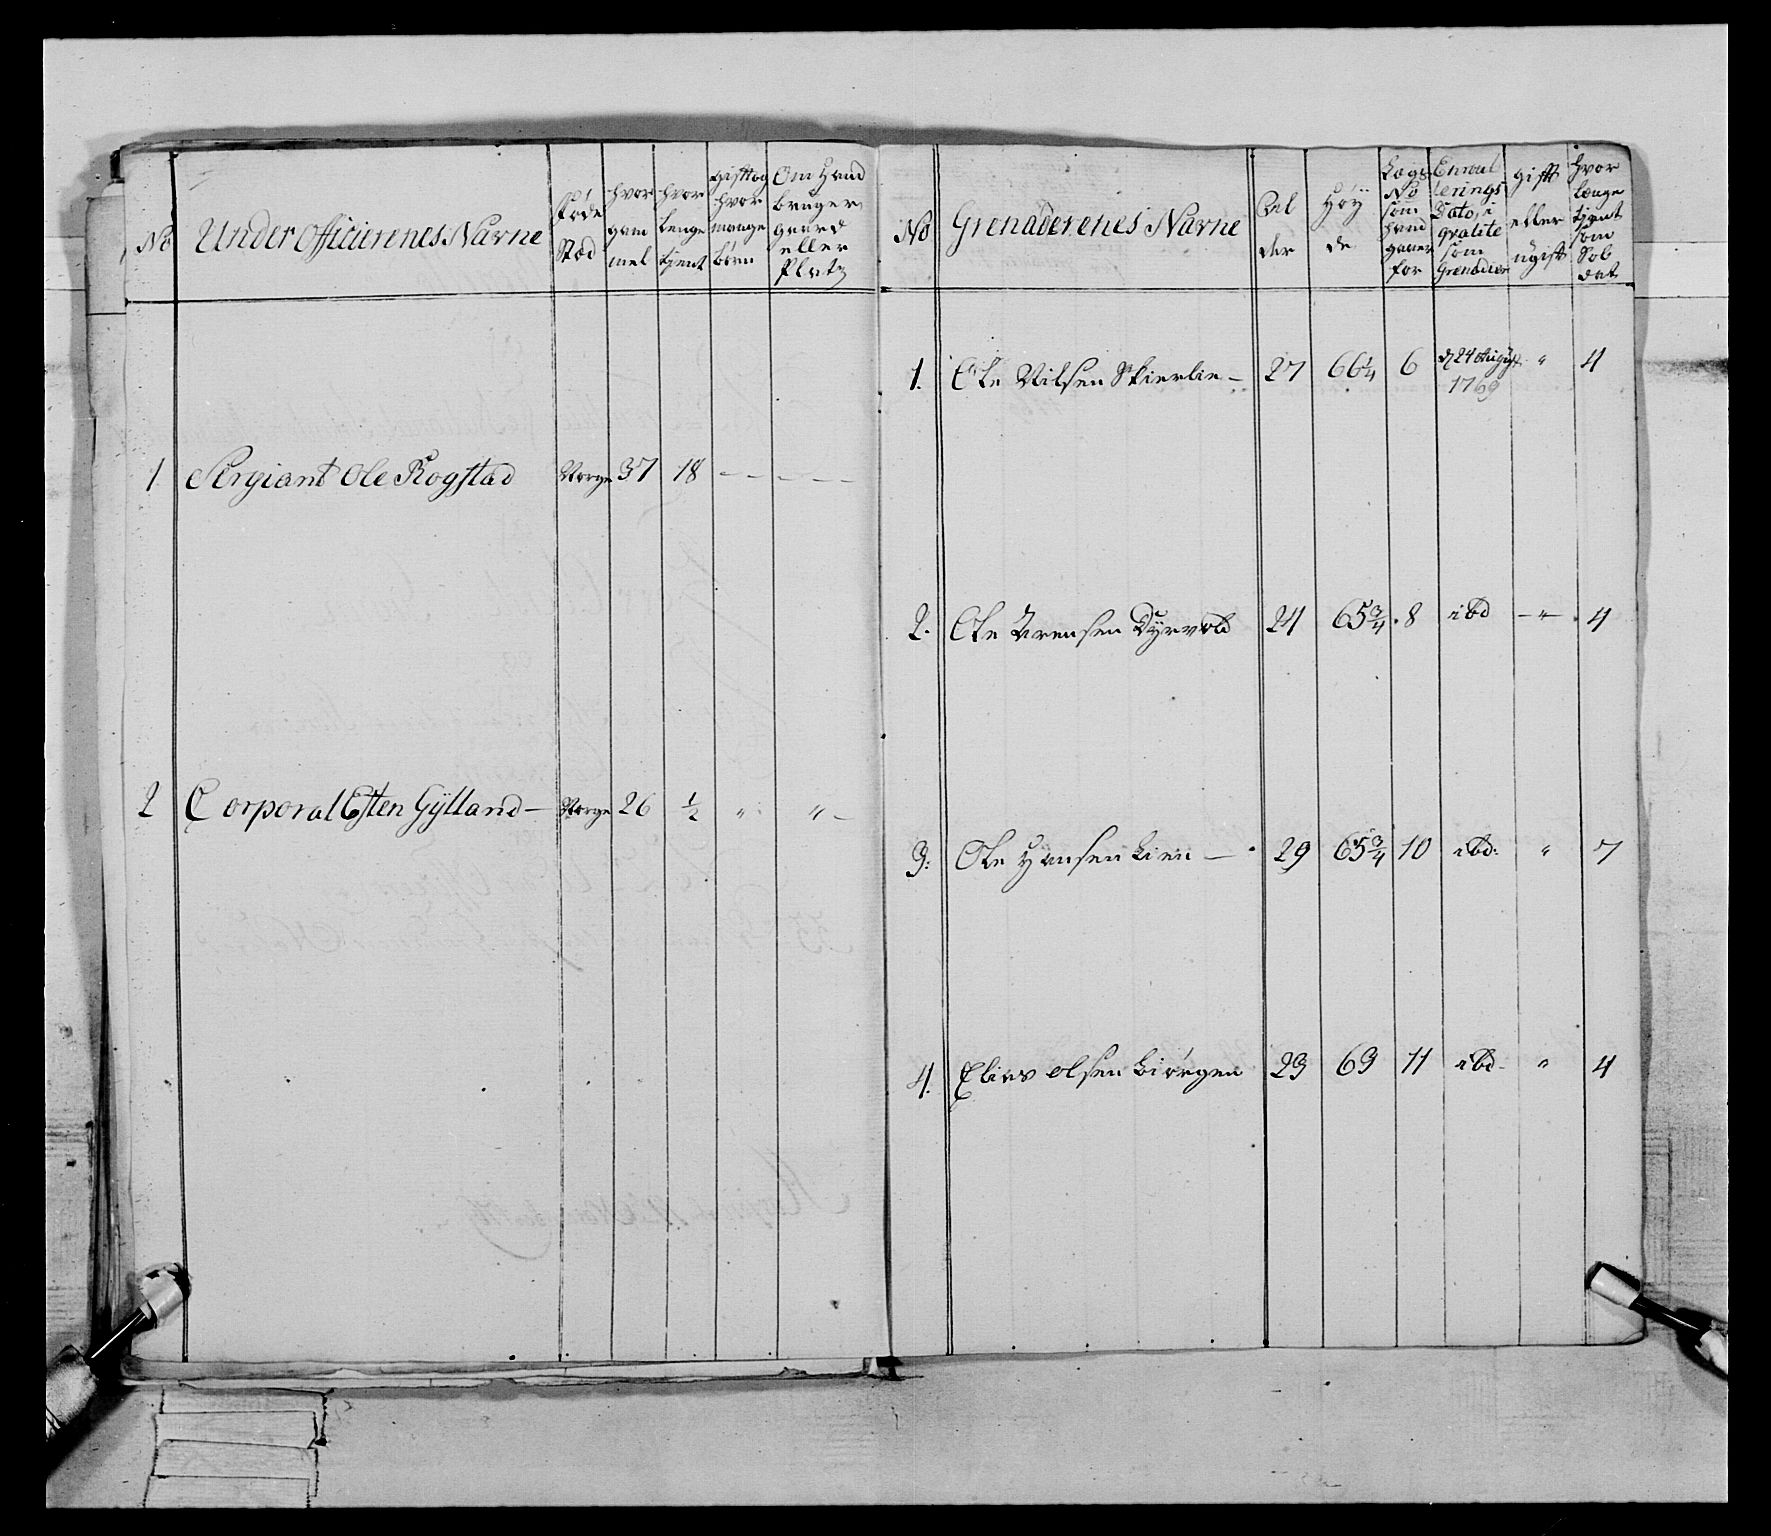 No
Under Officierenes Navne
føde Stæd
hvor gam mel
hvor lenge tient
gift og hvor mange børn
Om Hand bruger gaard eller Platz
1 Sergiant Ole Rogstad Norge 37 18 — — — — —
2 Corporal Esten Gylland — Norge 26 ½ " " —
No
Grenaderenes Navne
Al der
Høy de
Lægs No som hand gaaer for
Enroul lerings Dato i qvalite som Grenadeer
gift eller ugift
hvor længe tient som Sol dat
1. Ole Nilsen Skierlie — 27 66¼ 6 d 24 August 1769 " 4
2. Ole Arensen Dyrvold 24 65¾ 8 ibd — " — 4
3: Ole Hansen Lien — 29 65¾ 10 ibd: " 7
4. Elias Olsen Liørgen 23 69 11 ibd " 4